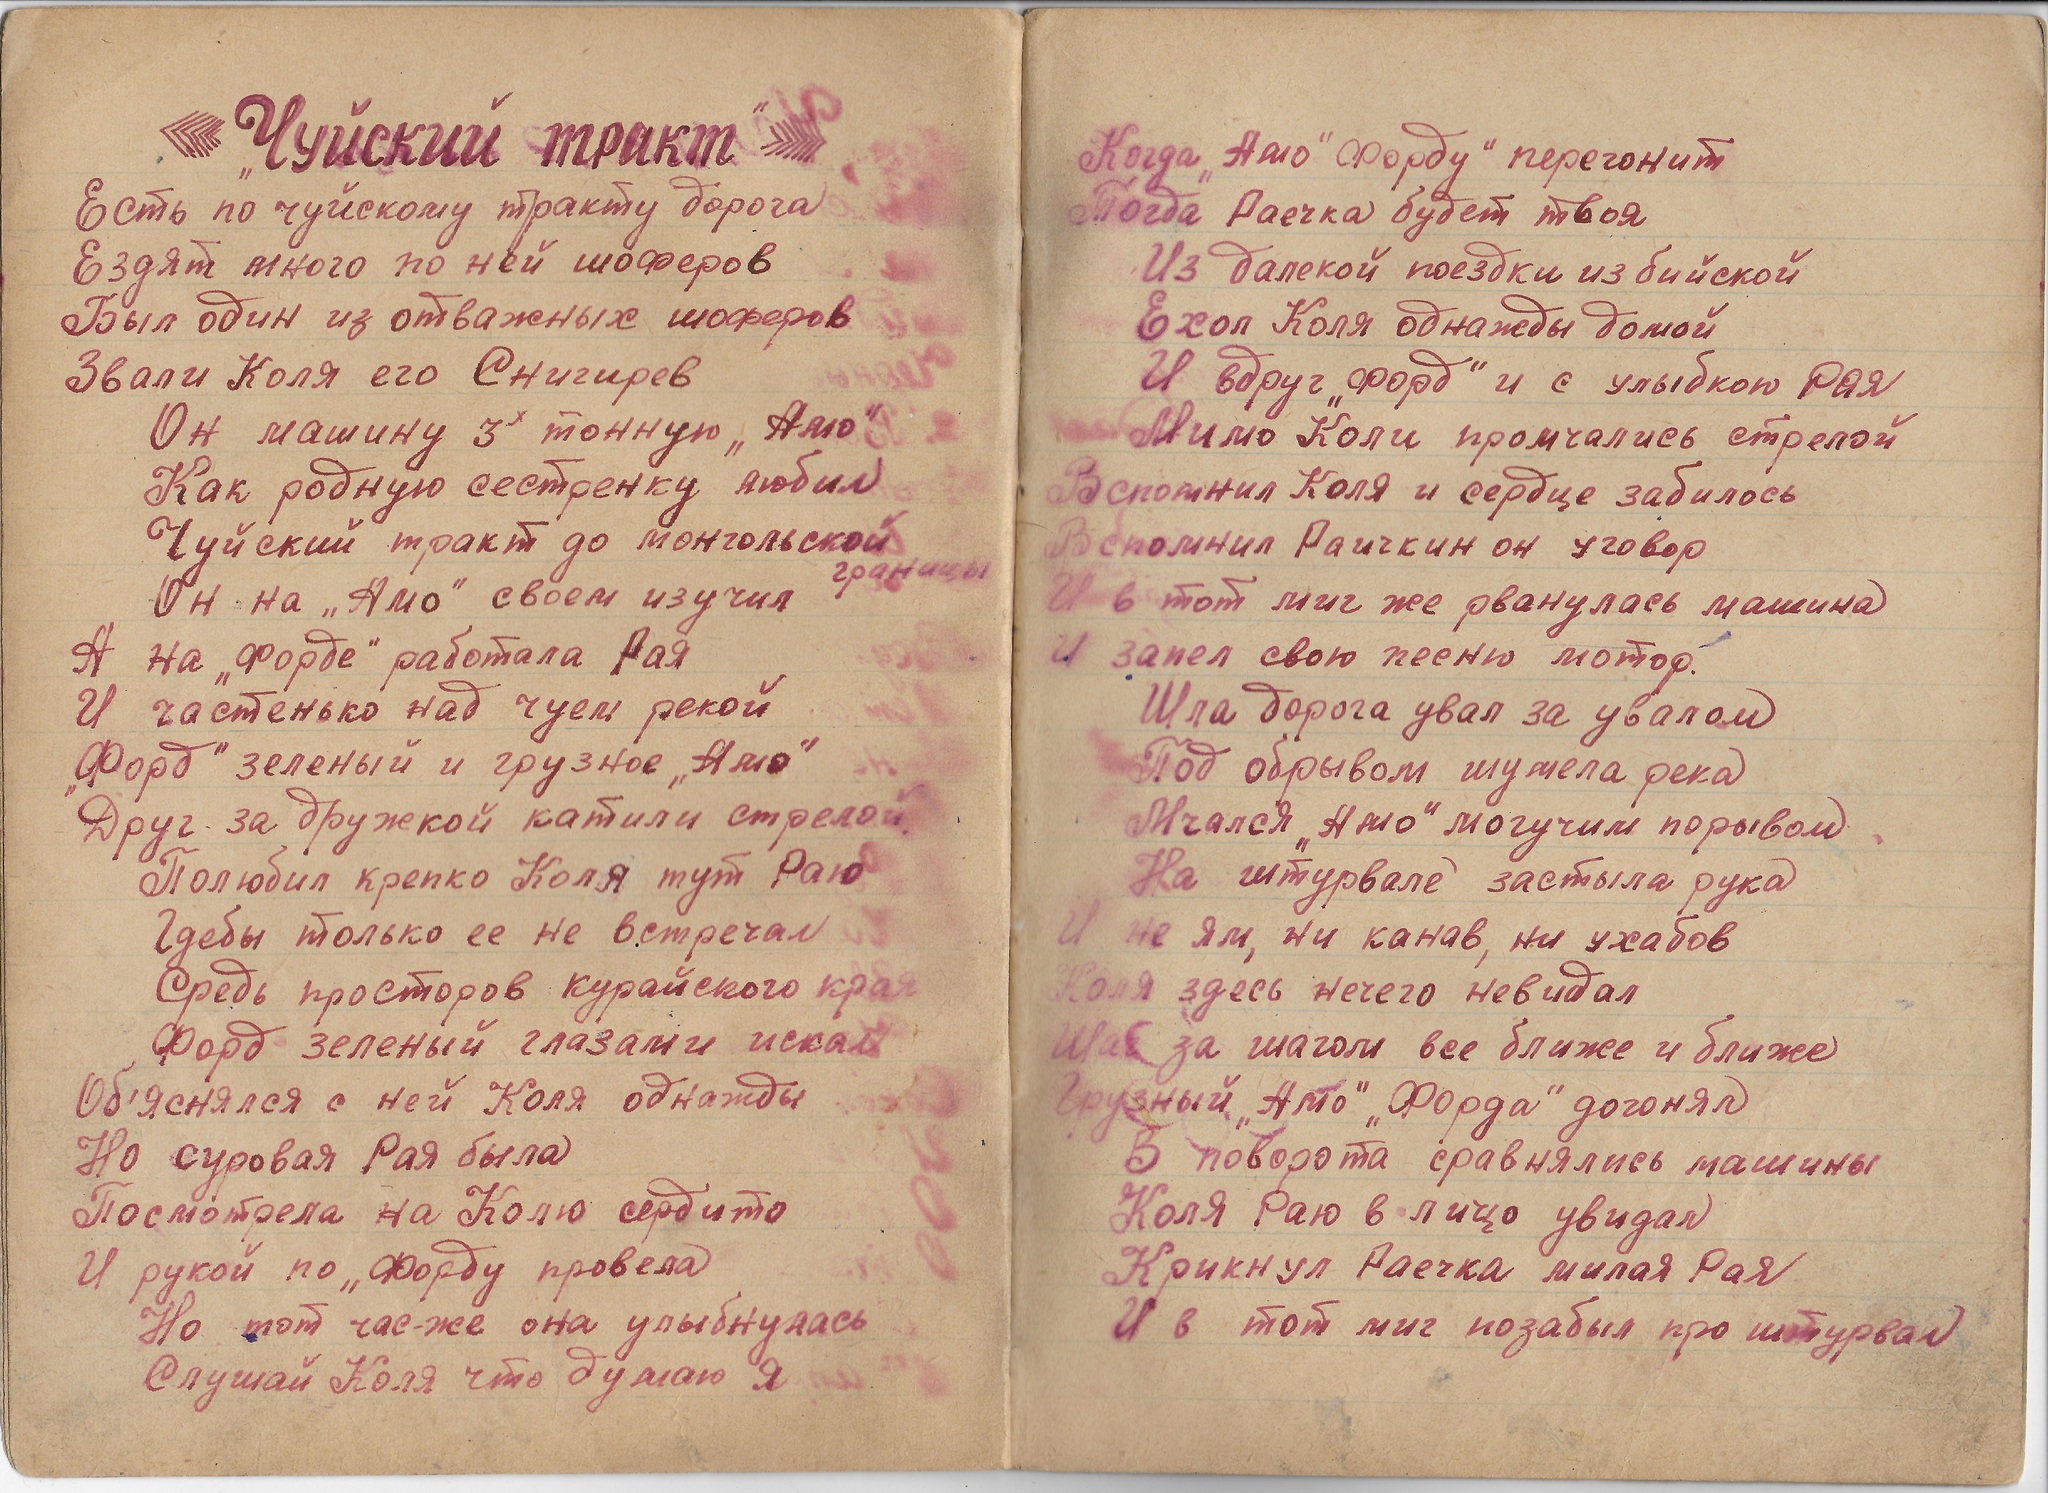 „Чуйский тракт"
Есть по чуйскому тракту дорога
Ездят много по ней шоферов
Был один из отважных шоферов
Звали Коля его Снигирев
Он машину 3х тонную „Амо"
Как родную сестренку любил
Чуйский тракт до монгольской
границы
Он на „Амо" своем изучил
А на „Форде" работала Рая
И частенько над чуем рекой
„Форд" зеленый и грузное „Амо"
Друг за дружкой катили стрелой.
Полюбил крепко Коля тут Раю
Гдебы только ее не встречал
Средь просторов курайского края
Форд зеленый глазами искал
Об'яснялся с ней Коля однажды
Но суровая Рая была
Посмотрела на Колю сердито
И рукой по „Форду провела
Но тот час-же она улыбнулась
Слушай Коля что думаю я
Когда „Амо" Форду" перегонит
Тогда Раечка будет твоя
Из далекой поездки из бийской
Ехол Коля однажды домой
И вдруг „Форд" и с улыбкою Рая
Мимо Коли промчались стрелой
Вспомнил Коля и сердце забилось
Вспомнил Раичкин он уговор
И в тот миг же рванулась машина
И запел свою песню мотор.
Шла дорога увал за увалом
Под обрывом шумела река
Мчался „Амо" могучим порывом
На штурвале застыла рука
И не ям, ни канав, ни ухабов
Коля здесь нечего невидал
Шаг за шагом все ближе и ближе
Грузный „Амо" „Форда" догонял
В поворота сравнялись машины
Коля Раю в лицо увидал
Крикнул Раечка милая Рая
И в тот миг позабыл про штурвал